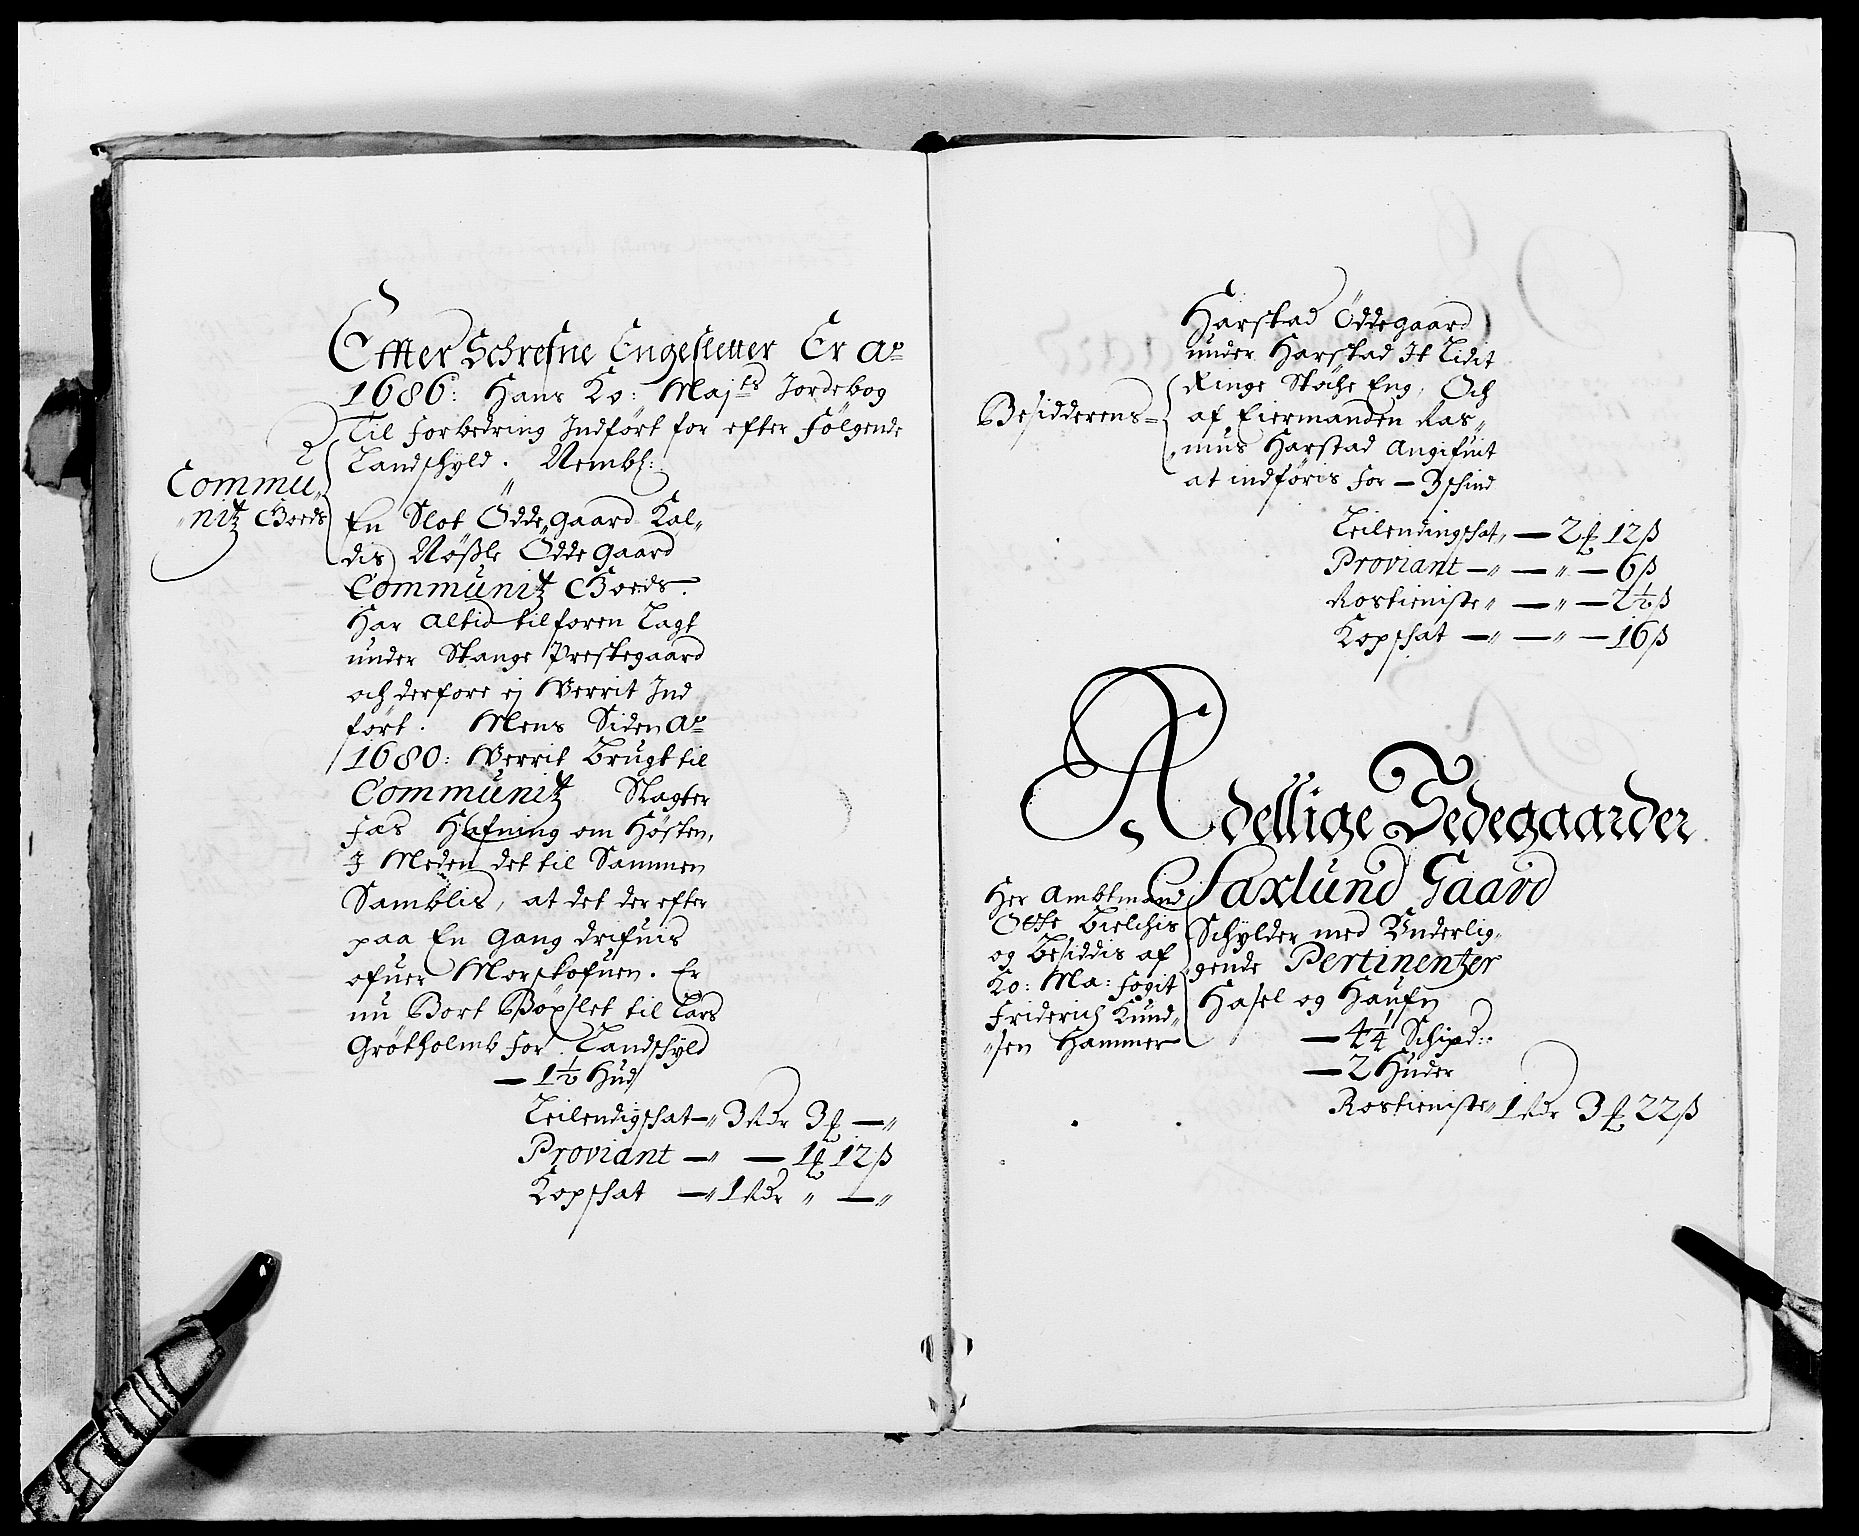 Effter Schrefne Engesletter Er Ao
1686: Hans Ko: Majts Jordebog
Til Forbedring Indført for efter Følgende
Landschyld. Nembl:
Commu-
nitz Goeds
En Slot Ödde gaard Kal-
dis Nøßle Ödde gaard
Communitz Goeds.
Har altid tilforen Lagt
under Stange Prestegaard
och derfore ej Werrit Ind
ført. Mens Siden Ao
1680: Werrit Brugt til
Communitz Slagter
fæs Hafning om Høsten,
I Meden det til Sammen
Samblis, at det der efter
paa En Gang drifuis
ofuer Morskofuen. Er
nu Bort Böxlet til Lars
Grötholmb for Landschyld
— 1½ Hud
Leilendigschat — 3 Rdr 3 —
Proviant — — 1 12 ß
Kopschat — 1 Rdr — 
Harstad Öddegaard
under Harstad It Lidit
Ringe Støche Eng, Och
Besidderens
af Eiermanden Ras-
mus Harstad Angifuit
at indføris for — 3 schind
Leilendingschat — 2 12 ß
Proviant — — — 6 ß
Rostieniste — — 2½ ß
Kopschat — — — 16 ß
Adellige Sedegaarder
Saxlund Gaard
Her Ambtmand
Otte Bielchis
og Besiddis af
Ko: Ma: fogit
Friderich Knud-
sen Hammer
Schylder med Underlig-
gende Pertinentzer
Hasel og Haufn
— 4¼ Schipd:
— 2 Huder
Rostieniste 1 Rdr 3 22 ß